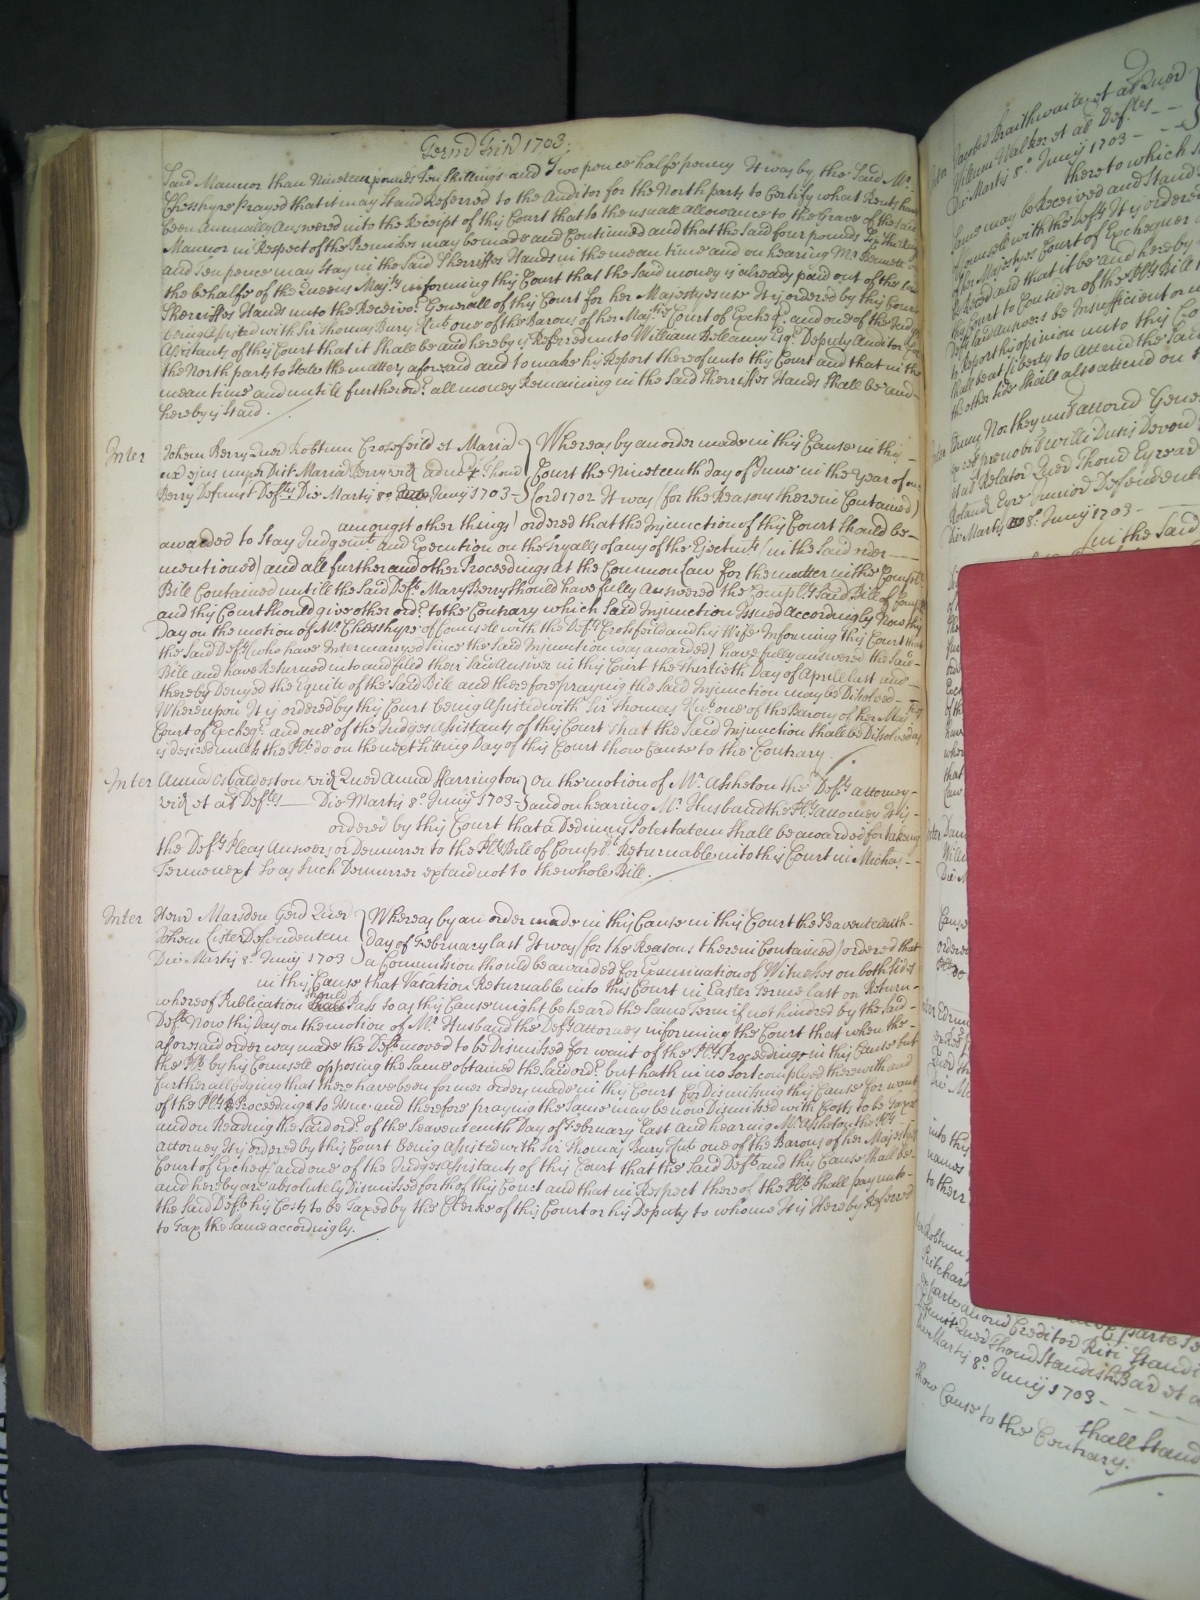 Term Trin 1703.
Said Mannor than Nineteen pounds Ten shillings and Two pence halfe penny It was by the Said Mr.
Chesshyre Prayed that it may Stand Referred to the Auditor for the North parts to Certify what Rents have
been Annually Answered into the Receipt of this Court that so the usuall allowance to the Grave of the said
Mannor in Respect of the Premises may be made and Continued and that the Said four pounds
and Ten pence may Stay in the Said Sherriffes Hands in the mean time and on hearing Mr. Bennett
the behalfe of the Queens Majty informing this Court that the Said money is already paid out of the said
Sherriffes Hands unto the Receiver Generall of this Court for her Majestyes use It is ordered by this Court
being Assisted with Sir Thomas Bury Knt one of the Barons of her Majtyes Court of Excheqr. and one of the Judges
Assistants of this Court that it Shall be and hereby is Referred unto William Bellamy Esqr. Deputy Auditor for
the North parts to State the matters aforesaid and to make his Report thereof unto this Court and that in the
meantime and untill further ordr. all money Remaining in the Said Sherriffes Hands Shall be and
hereby is Staid.
Inter Johem Berry Quer Robtum Crosfeild et Maria
ux ejus nuper Dict Maria Berry vid admx Thome
Berry Defunct Defts. Die Martis 8o Junij 1703
Whereas by an order made in this Cause in this
Court the Nineteenth day of June in the year of our
Lord 1702 It was (for the Reasons therein Contained)
amongst other things ordered that the Injunction of this Court should be
awarded to Stay Judgemt. and Execution on the Tryalls of any of the Ejectmts (in the Said order
mentioned) and all further and other Proceedings at the Common Law for the matter in the Complts.
Bill Contained untill the Said Deft. Mary Berry Should have fully Answered the Complts. Said Bill of Complt
and this Court Should give other ordr. to the Contrary which Said Injunction Issued accordingly Now this
Day on the motion of Mr. Chesshyre of Councell with the Defts. Crosfeild and his Wife Informing this Court that
the Said Defts. (who have Intermarryed Since the Said Injunction was awarded) have fully answered the Said
Bill and have Returned into and filed their Said Answer in this Court the Thirtieth Day of Aprill last and
thereby Denyed the Equity of the Said Bill and therefore praying the Said Injunction may be Disolved
Whereupon It is ordered by this Court being Assisted with Sir Thomas Bury Knt. one of the Barons of her Majtyes
Court of Excheqr. and one of the Judges Assistants of this Court That the Said Injunction Shall be Disolved as
is desired unless the Plt. do on the next Sitting Day of this Court show Cause to the Contrary.
Inter Anna Osbaldeston vid Quer Anna Harrington
vid et al Defts. Die Martis 8o Junij 1703
On the motion of Mr. Assheton the Defts. attorney
and on hearing Mr. Husband the Plts. attorney It is
ordered by this Court that a Dedimus Potestatem Shall be awarded for taking
the Defts. Pleas Answers or Demurrer to the Plts. Bill of Complt. Returnable into this Court in Michas.
Terme next So as Such Demurrer extend not to the whole Bill.
Inter Henr Marsden Gerd Quer
Johem Lister Defendentem
Die Martis 8o Junij 1703
Whereas by an order made in this Cause in this Court the Seaventeenth
day of February last It was (for the Reasons therein Contained) ordered that
a Commission Should be awarded for Examination of Witnesses on both Sides
in this Cause that Vacation Returnable into this Court in Easter Terme last on Return
whereof Publication should Pass So as this Cause might be heard the Same Terme if not hindred by the Said
Deft. Now this Day on the motion of Mr. Husband the Defts. attorney informing the Court that when the
aforesaid order was made the Deft. moved to be Dismissed for want of the Plts. Proceedings in this Cause but
the Plt. by his Councell opposing the Same obtained the Said ordr. but hath in no sort complyed therewith and
further alledging that there have been former orders made in this Court for Dismissing this Cause for want
of the Plts. Proceedings to Issue and therefore praying the Same may be now Dismissed with Costs to be Taxed
and on Reading the Said ordr. of the Seaventeenth Day of February Last and hearing Mr. Assheton the Plts.
attorney It is ordered by this Court being Assisted with Sir Thomas Bury Knt. one of the Barons of her Majestyes
Court of Excheqr. and one of the Judges Assistants of this Court that the Said Deft. and this Cause Shall be
and hereby are absolutely Dismissed forth of this Court and that in Respect thereof the Plt. Shall pay unto
the Said Deft. his Costs to be Taxed by the Clerke of this Court or his Deputy to whome It is Hereby Referred
to Tax the Same accordingly.
Jacobu Braithwaite et al Quer
Willum Walker et al Defts.
Die Martis 8o Junij 1703
thereto which
Same may be Received and Stand
Councell with the Defts. It is ordered
of her Majestyes Court of Exchequer
and that it be and hereby
this Court to Consider of the Plts. Bill
Defts. said answers be Insufficient or
to Report his opinion unto this Co
Shall be at liberty to attend the Said
the other side Shall also attend on
Northey mil attorn Gene
prenobil Willi Ducis Devon
et al Relator Quer Thom Eyre ar
Roland Eyre Junior Defendent
Die Martis 8o Junij 1703
(in the Said
that
Law
Cause
ordered
into this
names
to their
Robtum
Ritchard
ex parte
Creditor Riti Standi
Defunct Quer Thom Standish Bar et a
Die Martis 8o Junij 1703
Shall Stand
Show Cause to the Contrary.